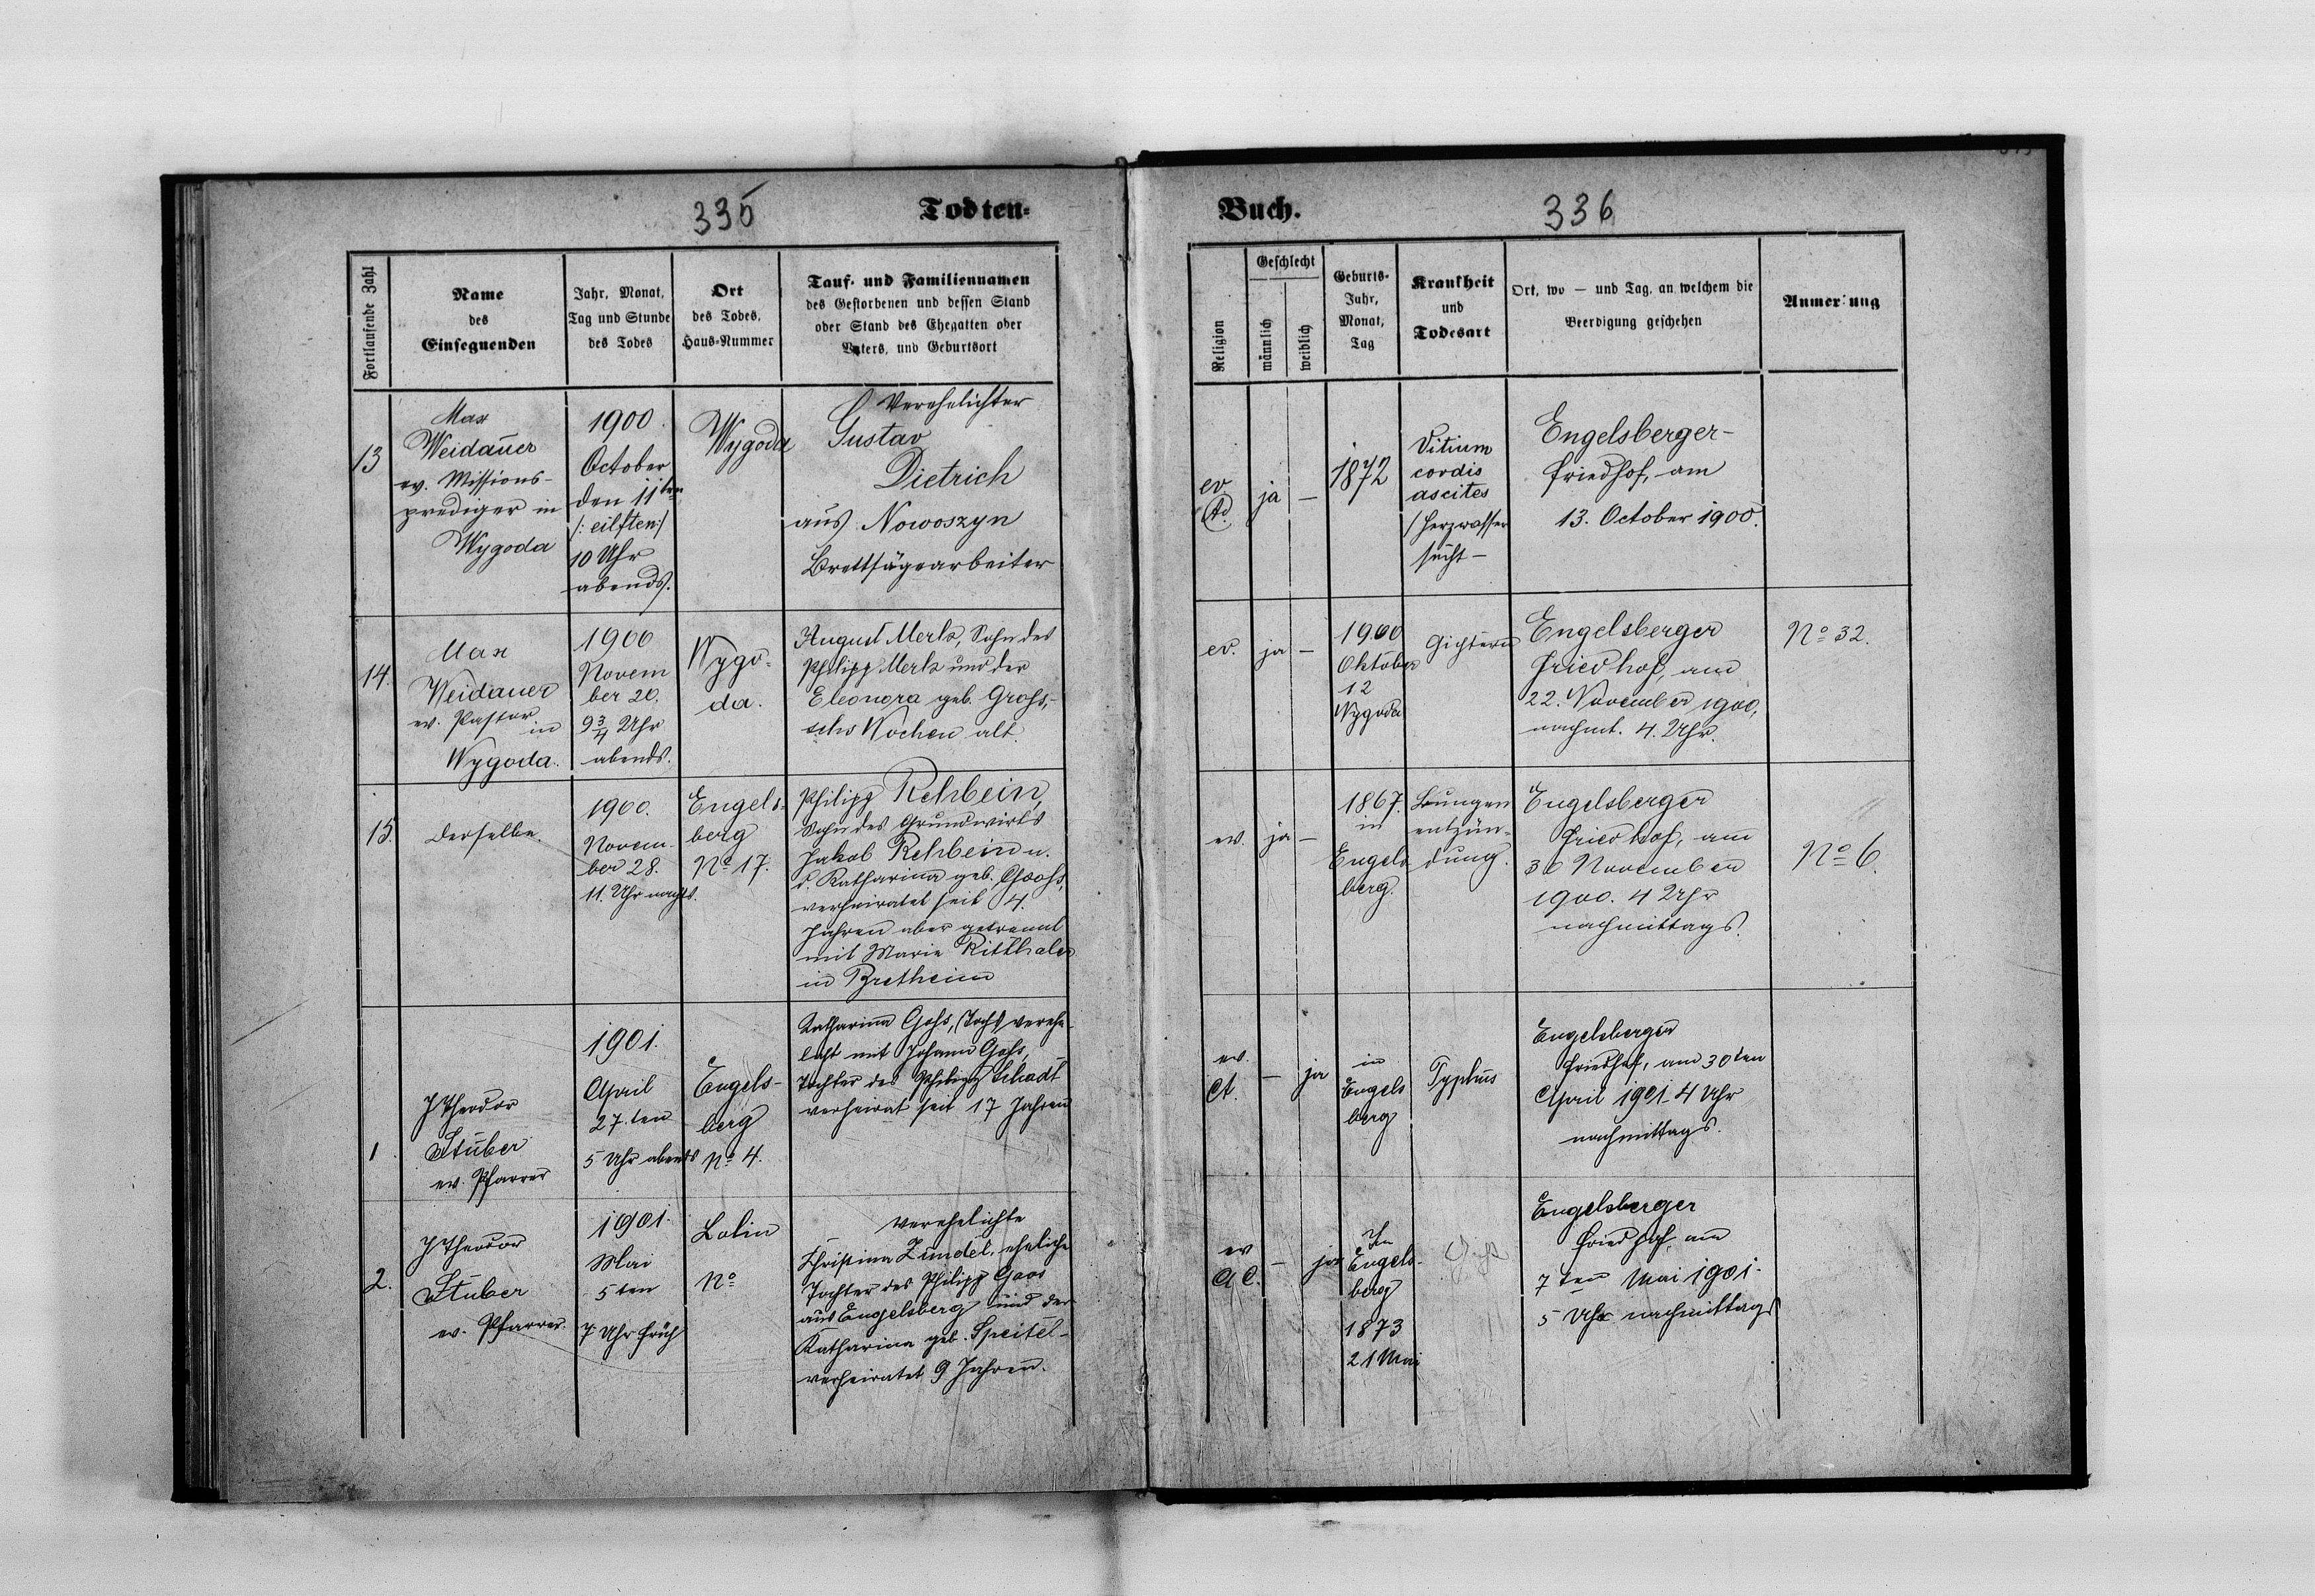 335
Todten-
Fortlaufende Zahl
Name
des
Einsegnenden
Jahr, Monat,
Tag und Stunde
des Todes
Ort
des Todes,
Haus-Nummer
Tauf- und Familiennamen
des Gestorbenen und dessen Stand
oder Stand des Ehegatten oder
Vaters, und Geburtsort
13
Max
Weidauer
ev. Missions-
prediger in
Wygoda
1900.
October
den 11ten
/: eilften :/
10 Uhr
abends.
Wygoda
Verehelichter
Gustav
Dietrich
aus Nowoszyn
Brettsägearbeiter
14.
Max
Weidauer
ev. Pastor
in
Wygoda.
1900
Novem
ber 20.
9 3/4 Uhr
abends.
Wygo-
da.
August Merk, Sohn des
Philipp Merk und der
Eleonora geb. Grohs,-
sechs Wochen alt.
15.
derselbe.
1900.
Novem-
ber 28.
11. Uhr nachts.
Engels-
berg
No 17.
Philipp Rehbein,
Sohn des Grundwirts
Jakob Rehbein u.
d. Katharina geb. Goohs,
verheiratet seit 4.
Jahren aber getrennt
mit Marie Ritthaler
in Bretheim
1
J Theodor
Stuber
ev. Pfarrer
1901.
April
27. ten
5 Uhr abends
Engels-
berg
No 4.
Katharina Gohs, verehe-
licht mit Johann Gohs,
Tochter des Philipp Schadt
verheirat seit 17 Jahren
2.
J Theodor
Stuber
ev. Pfarrer.
1901.
Mai
5 ten
7 Uhr früh
Lolin
No
Verehelichte
Christina Zundel, eheliche
Tochter des Philipp Goos
aus Engelsberg und der
Katharina geb. Speitel-
verheiratet 9 Jahren.
Buch.
336
Religion
Geschlecht
männlich
weiblich
Geburts-
Jahr,
Monat,
Tag
Krankheit
und
Todesart
Ort, wo — und Tag, an welchem die
Beerdigung geschehen
Anmerkung
ev
ja
—
1872
Vitium
cordis
ascites
/Herzwasser
sucht-
Engelsberger-
friedhof, am
13. October 1900.
ev.
ja
—
1900
Oktober
12
Wygoda
Gichtern
Engelsberger
Friedhof, am
22. November 1900,
nachmt. 4. Uhr.
No 32.
ev.
ja
—
1867.
in
Engels
berg.
Lungen
entzün-
dung.
Engelsberger
Friedhof, am
30 November
1900. 4 Uhr
nachmittags.
No 6.
ev.
A.
—
ja
in
Engels
berg
Typhus
Engelsberger
Friedhof, am 30ten
April 1901. 4 Uhr
nachmittags.
ev
A C.
—
ja
In
Engels-
berg
1873
21 Mai
Gicht
Engelsberger
Friedhof, am
7 ten Mai 1901.
5 Uhr nachmittags